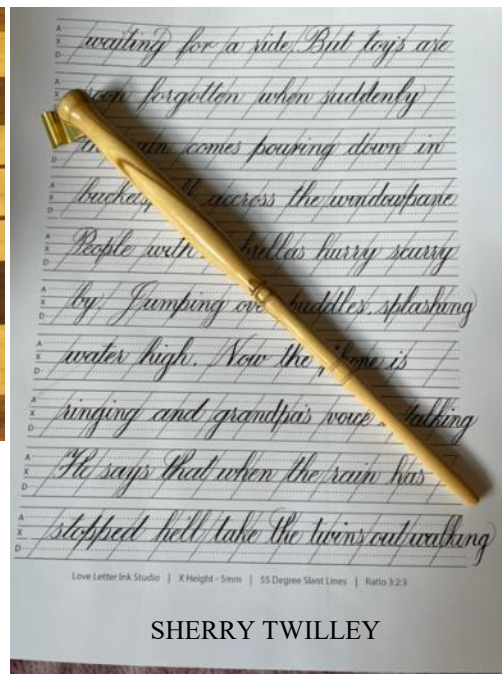 waiting for a ride. But toys are
forgotten when suddenly
comes pouring down in
buckets, accross the windowpane
People with hurry scurry
by. Jumping splashing
water high. Now the is
ringing and grandpa's voice talking
He says that when the rain has
stopped he'll take the twins out walking
Love Letter Ink Studio | X Height - 5mm | 55 Degree Slant Lines | Ratio 3:2:3
SHERRY TWILLEY